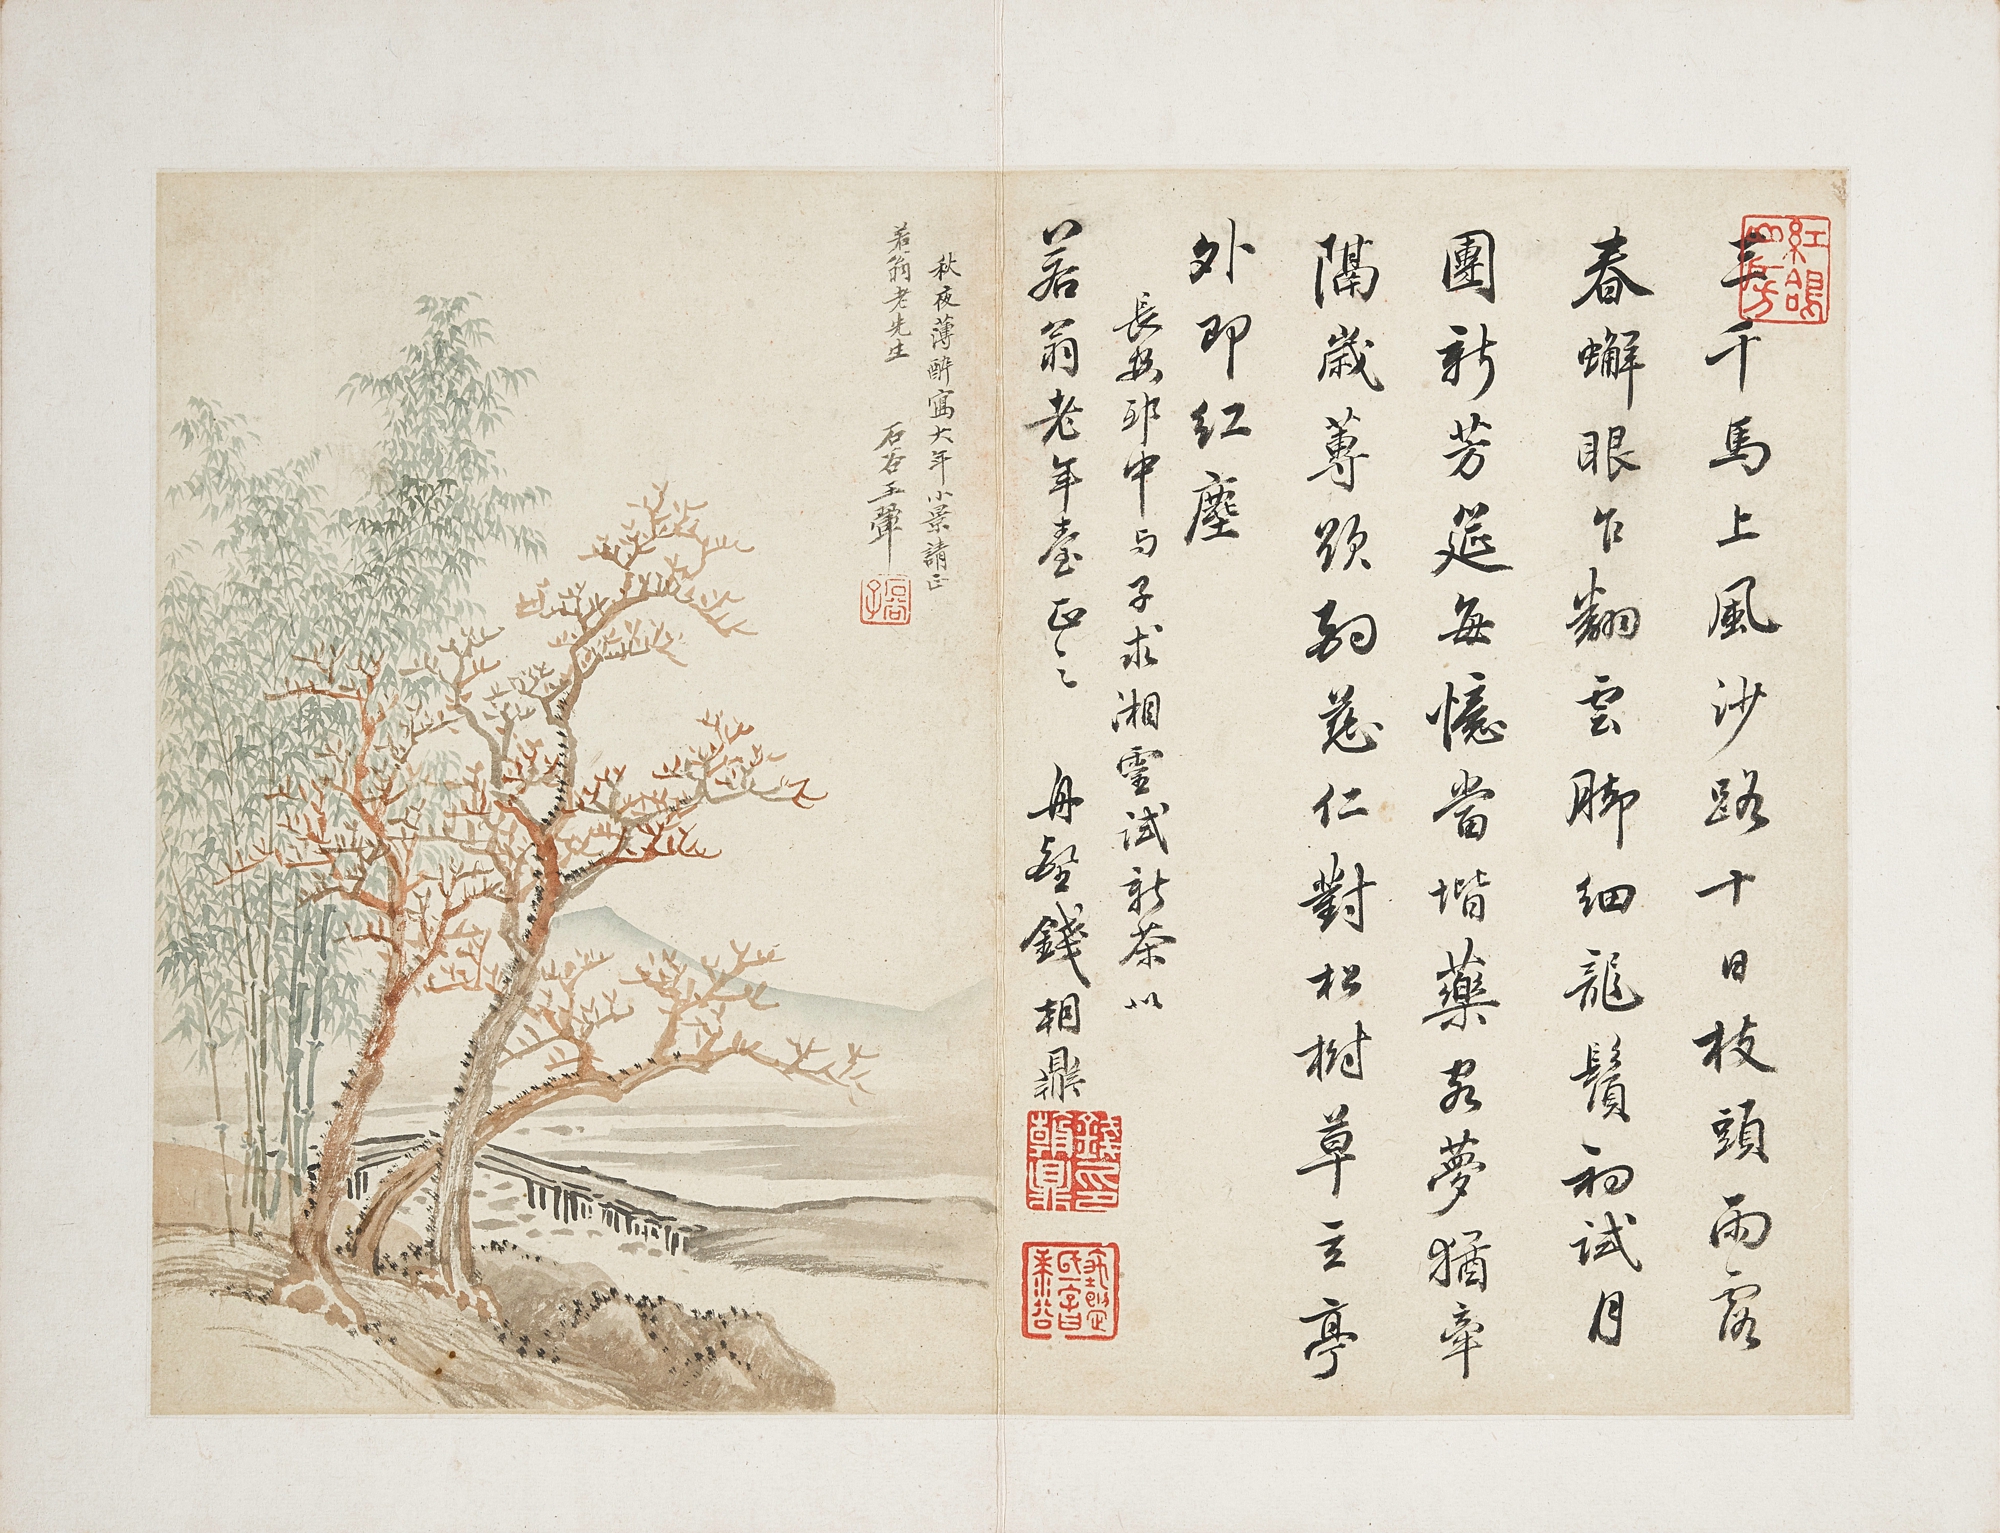 三千馬上風沙路十日枝頭雨露
春蠏眼乍翻雲脚細龍鬚初試月
團新芳筵每憶當堦藥客夢猶牽
隔歲蓴頭劾慈仁對松樹草玄亭
外即紅塵
長安邸中与子求湘靈試新茶以
若翁老年臺正之 舟壑錢相鼎
秋夜薄醉寫大年小景請正
若翁老先生 石谷王翬